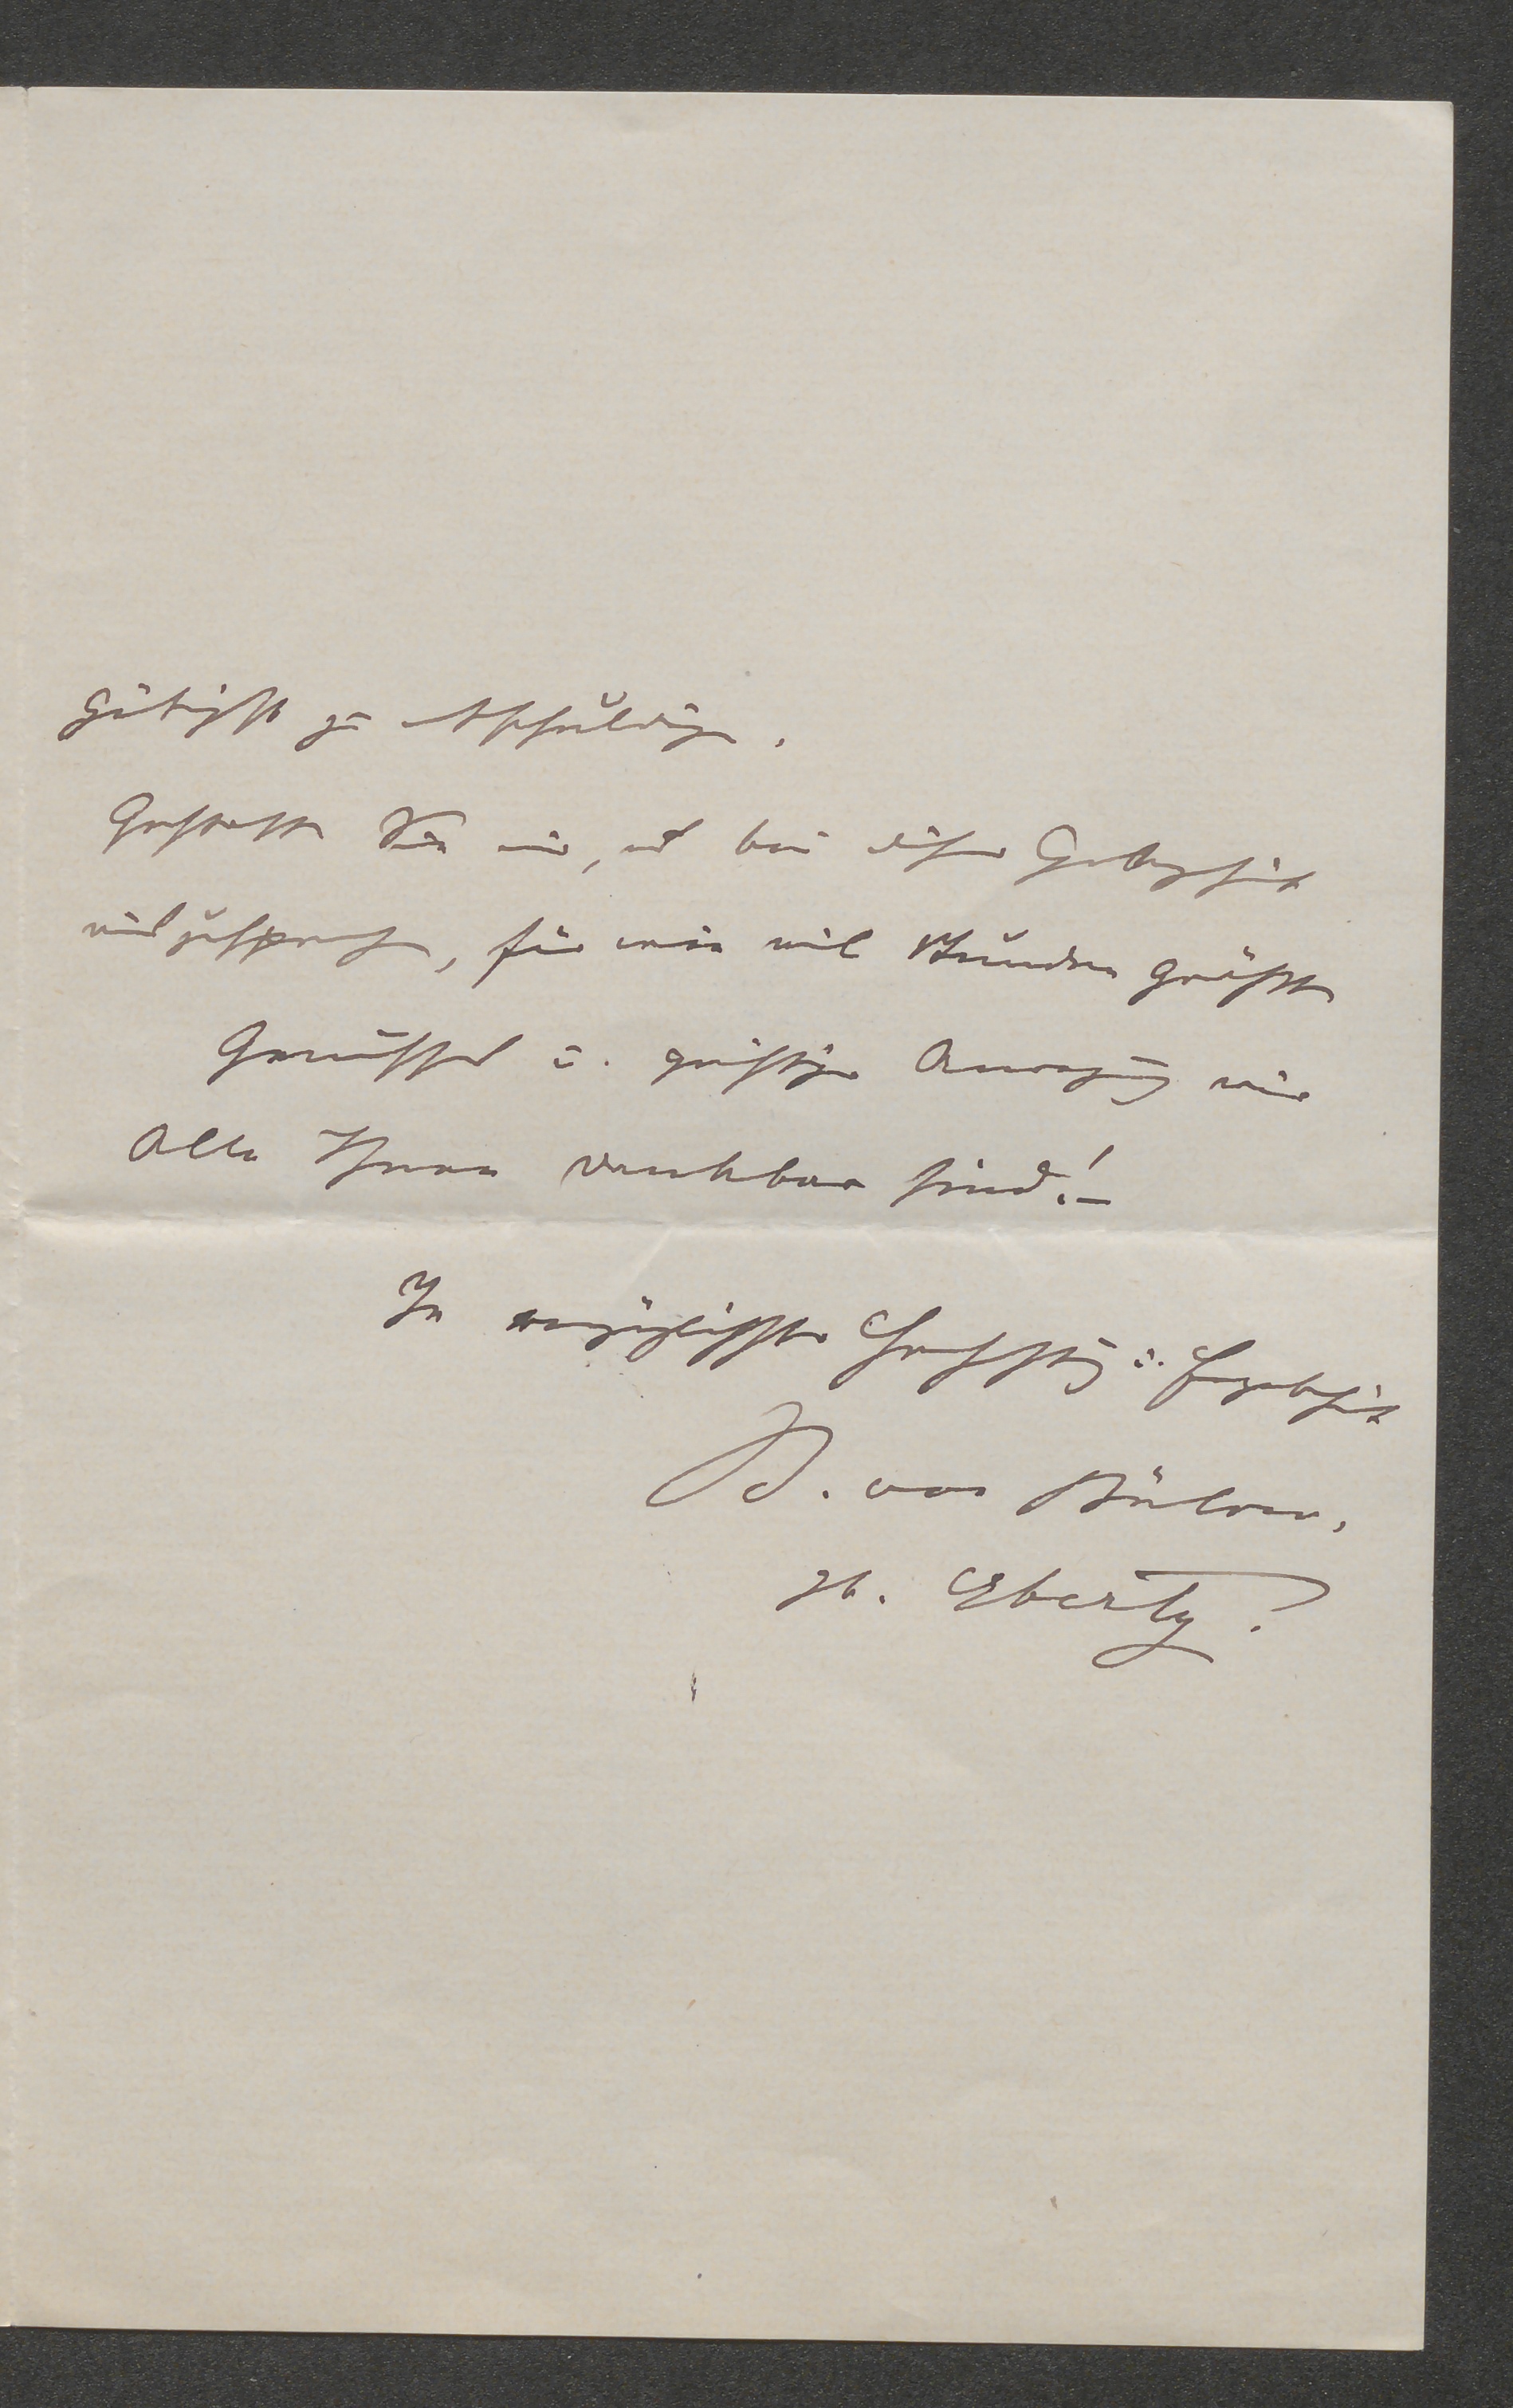 gütigst zu entschuldigen.
Gestatten Sie mir, es bei dieser Gelegenheit
auszusprechen, für wie viel Stunden größten
Genusses u. geistiger Anregung wir
Alle Ihnen dankbar sind! –
In vorzüglichster Hochachtung u. Ergebenheit
B. von Bülow,
gb. Eberty.